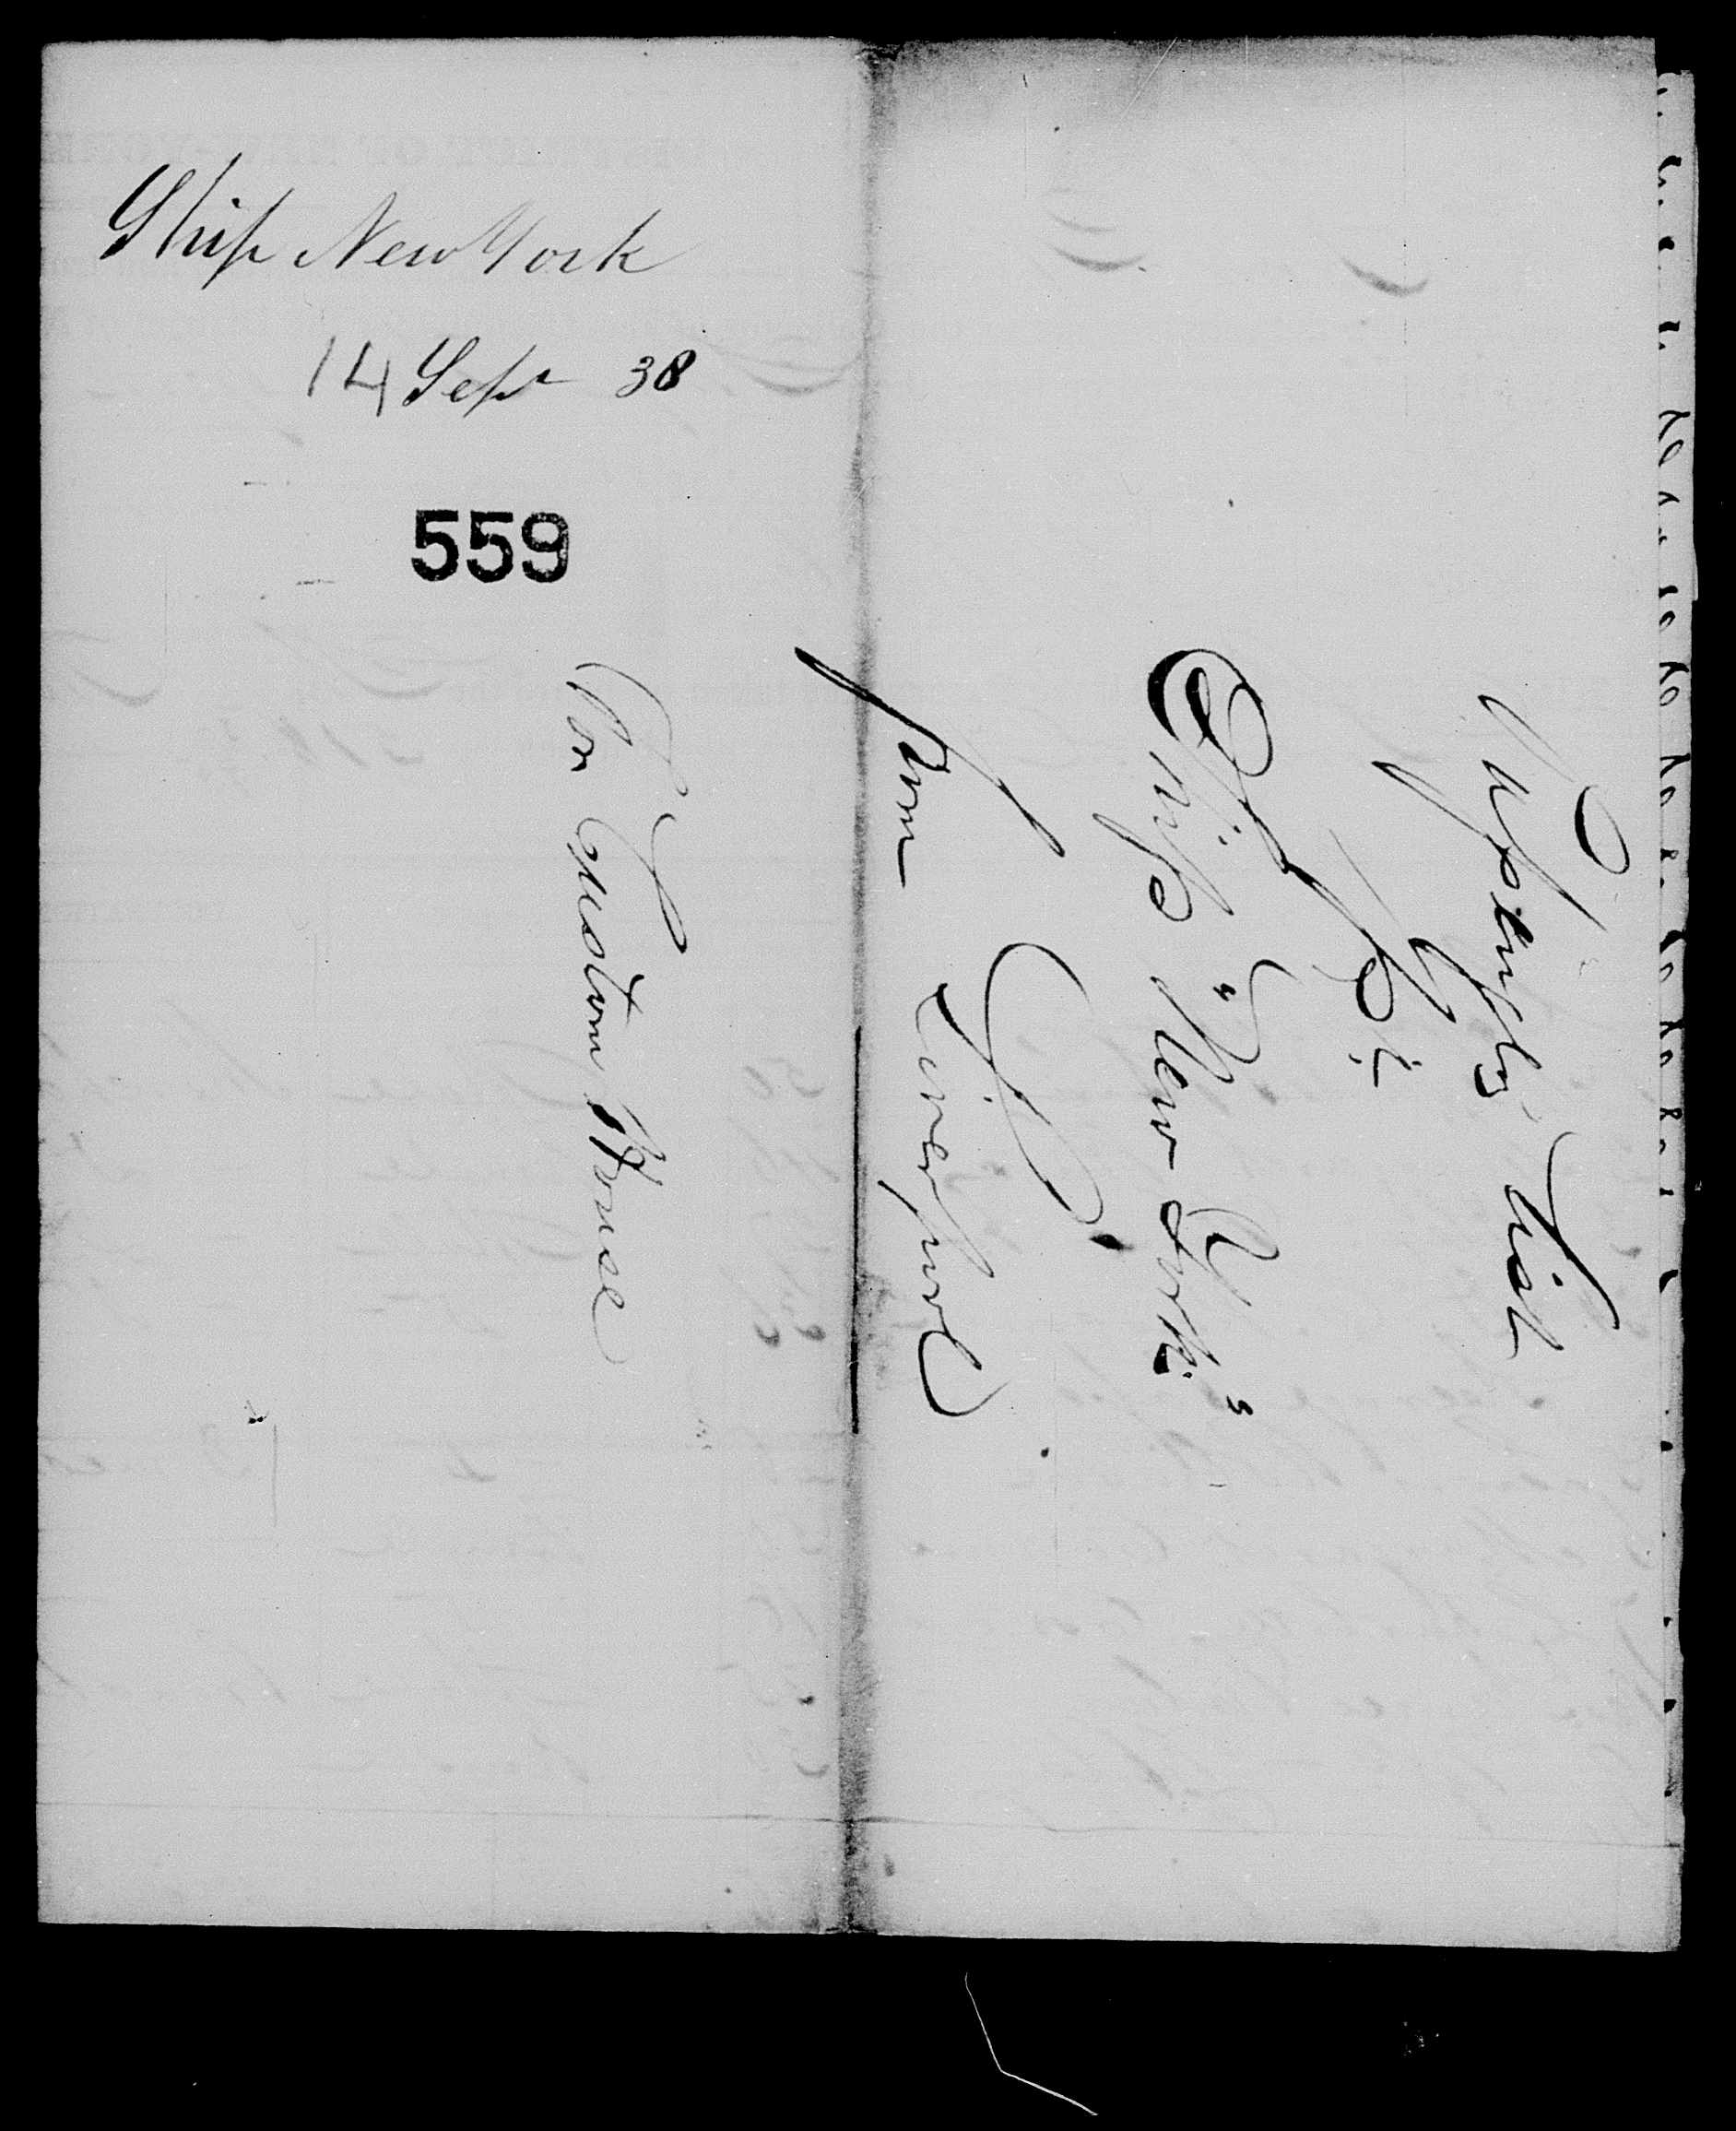 Ship New York
14 Sept 38
559
Passengers List
of
Ship "New York"
from Liverpool
For Custom House